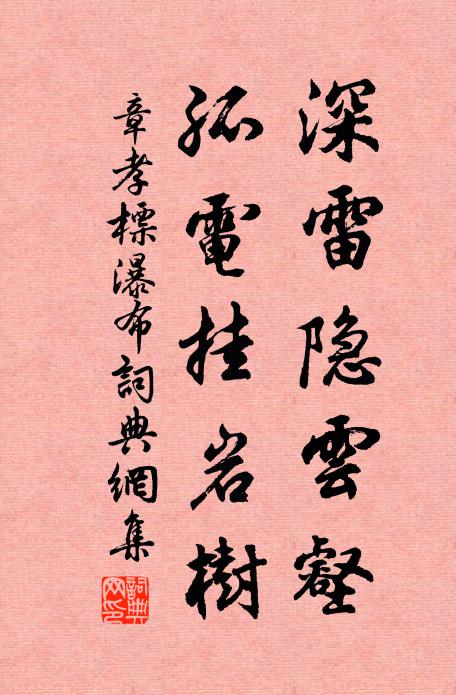 深雷隐雲壑
孤電挂岩樹
章孝標瀑布詞典網集
詞典網印